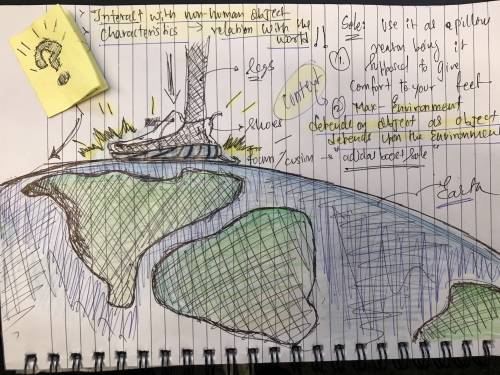 ?
Interact with non-human object
characteristics → relation with the
world !!
Legs
Context
Shoes
foam/cusion → "adidas boost sole"
Sole: Use it as a pillow
①. reason being it
supposed to give
comfort to your feet
② Max - Environment
depends on object as object
depends upon the Environment
Earth